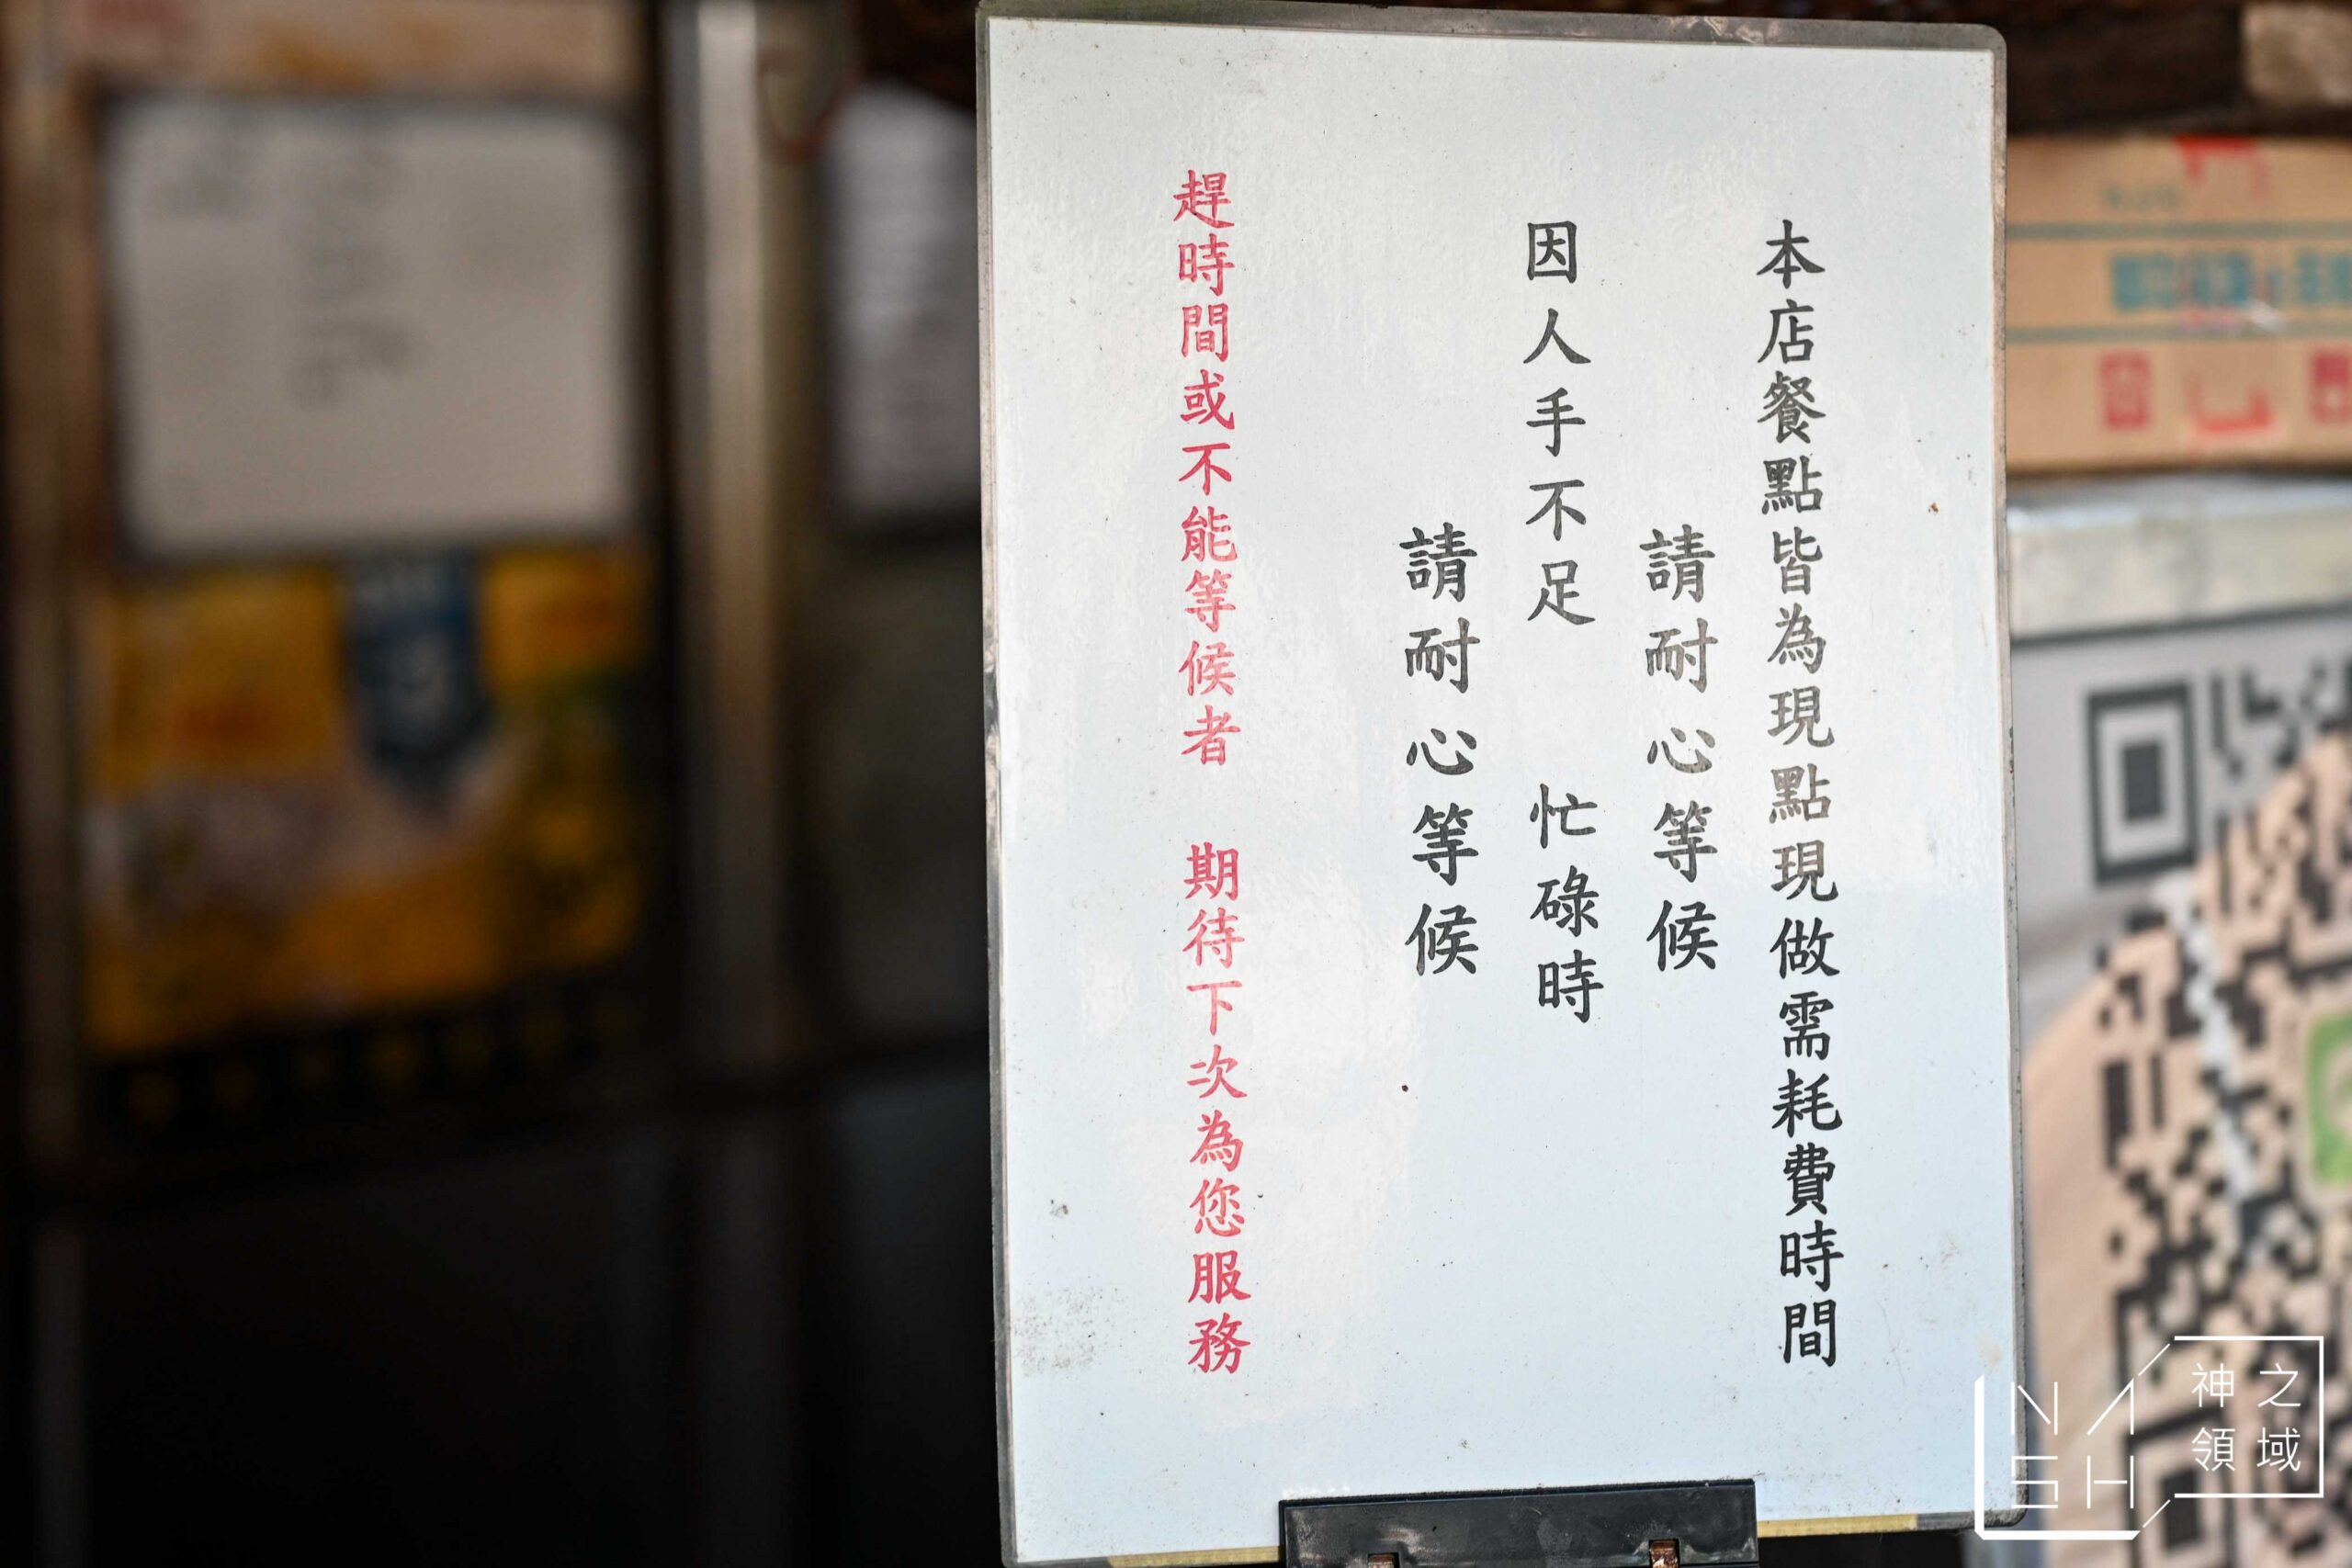 本店餐點皆為現點現做需耗費時間
請耐心等候
因人手不足 忙碌時
請耐心等候
趕時間或不能等候者 期待下次為您服務
NASH
神之
領域